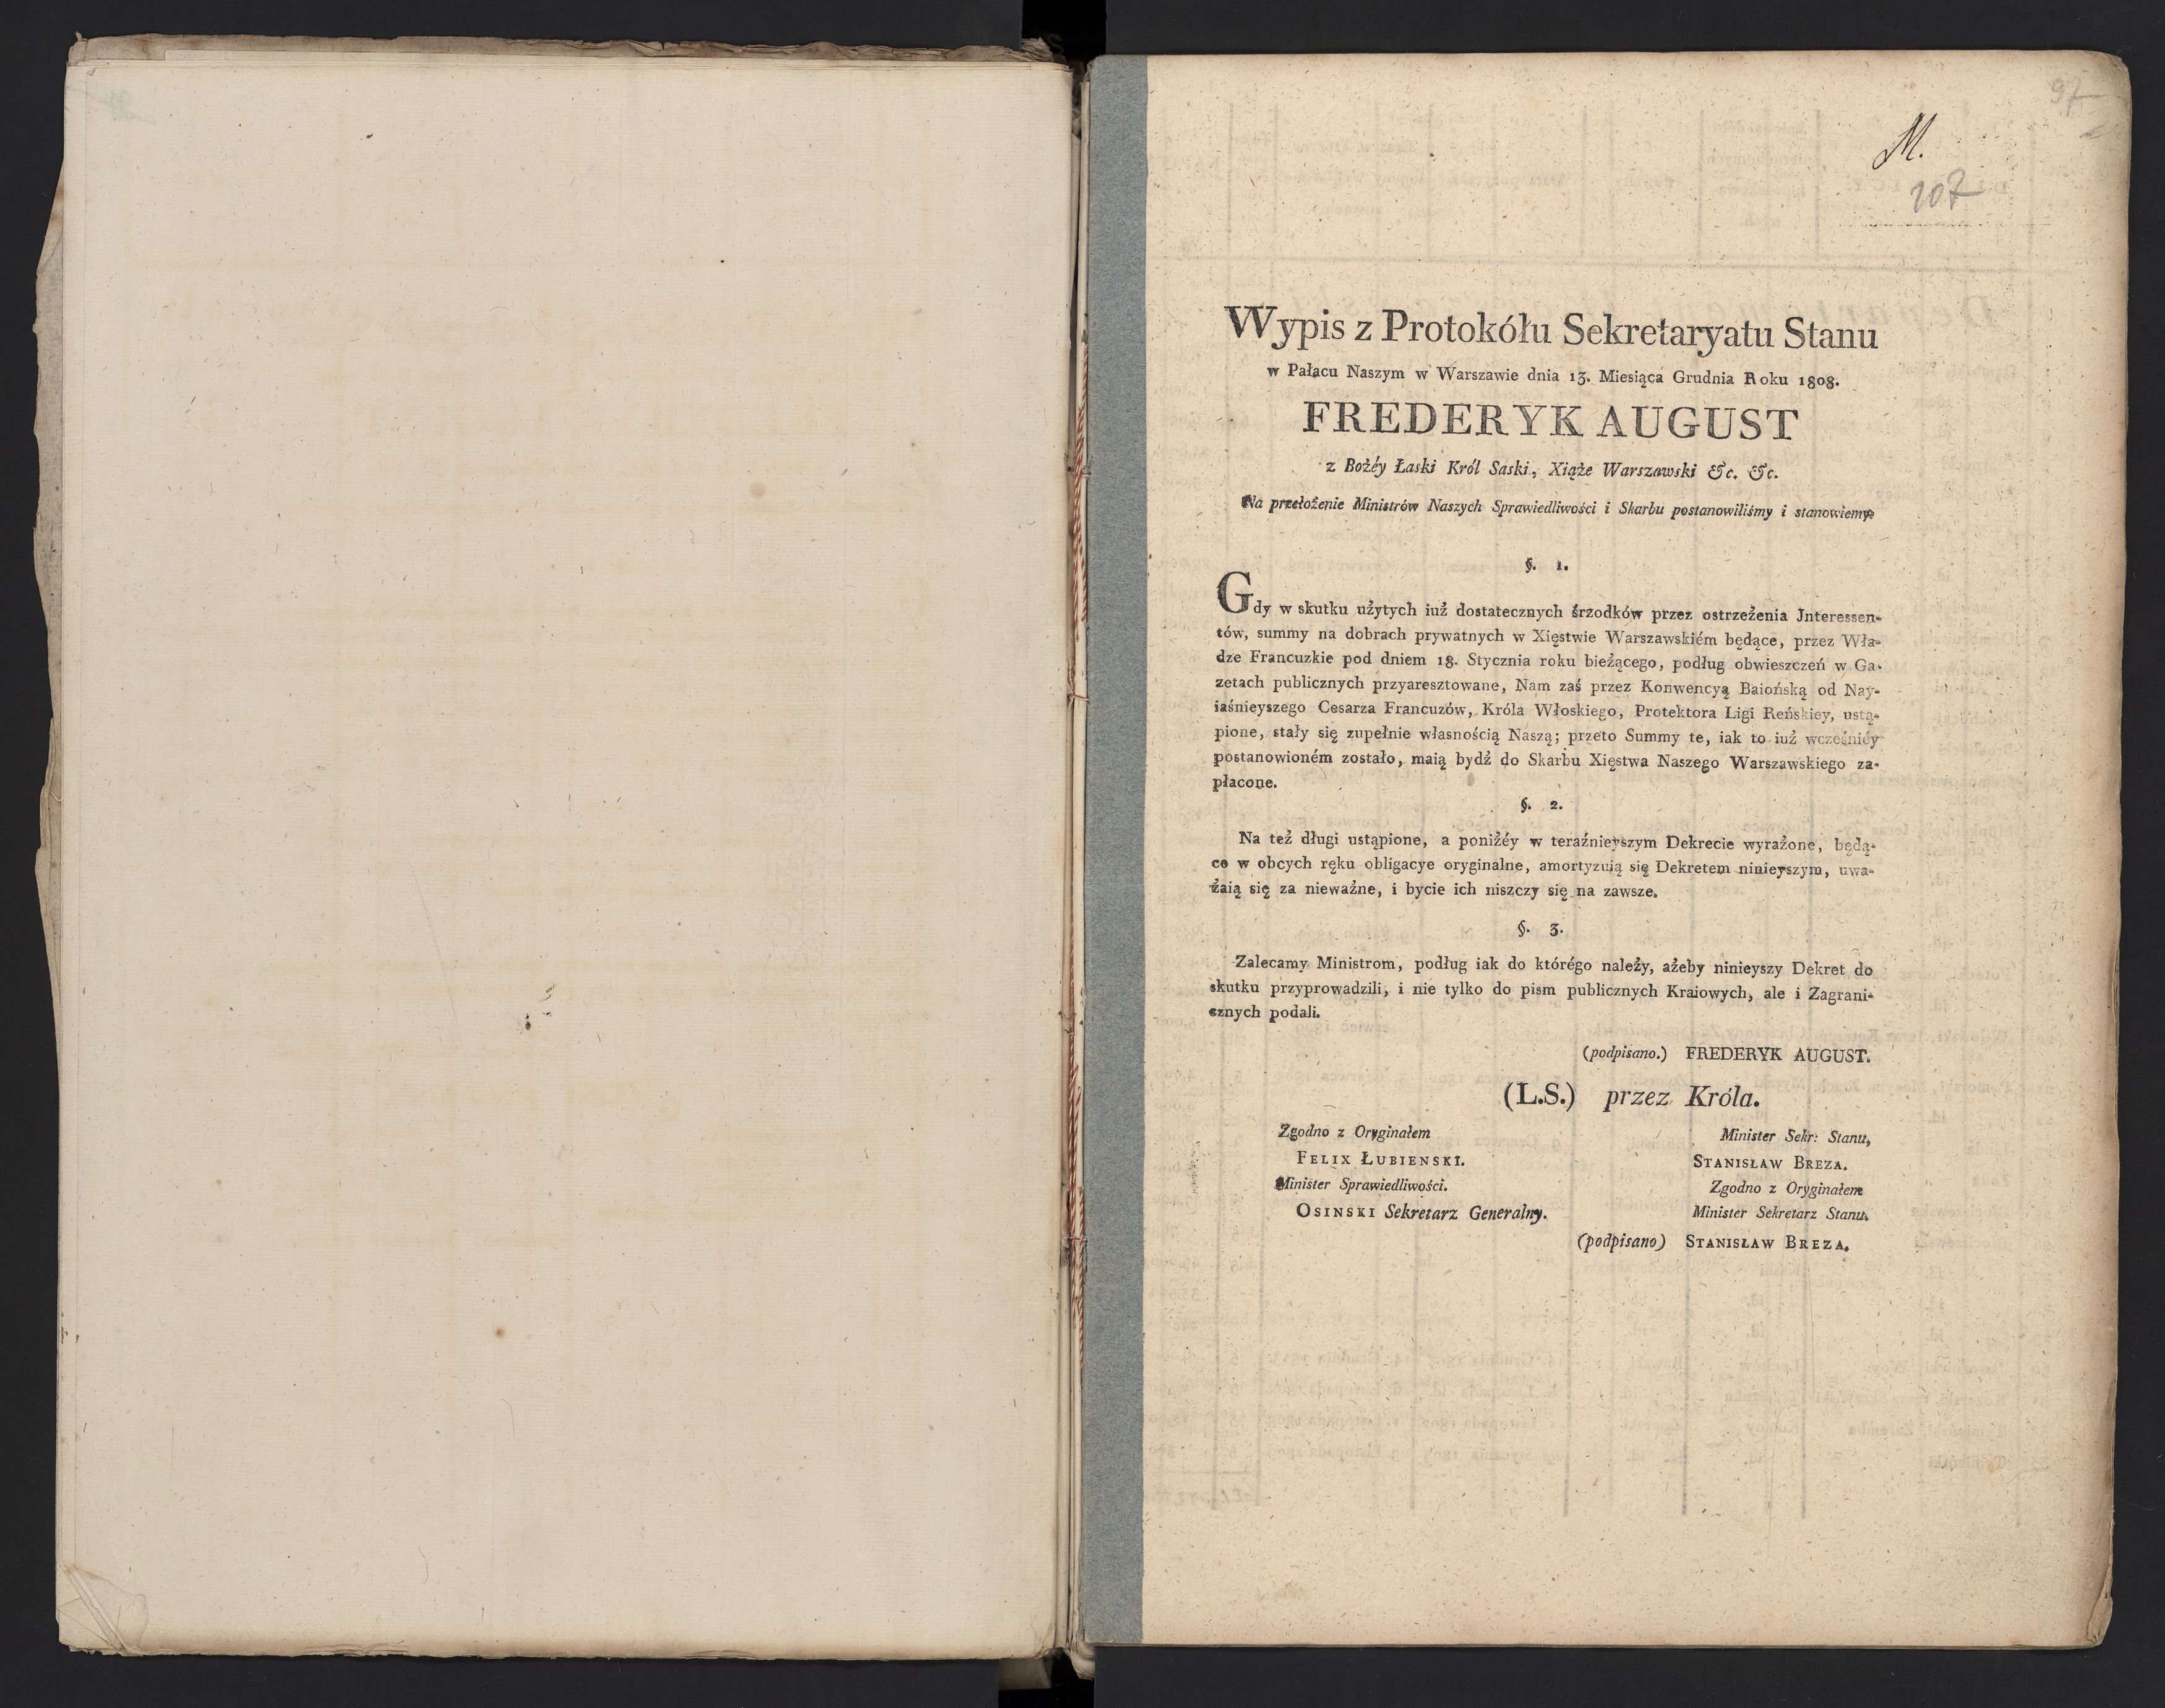 97
M.
107
Wypis z Protokółu Sekretaryatu Stanu
w Pałacu Naszym w Warszawie dnia 13. Miesiąca Grudnia Roku 1808.
FREDERYK AUGUST
z Bożéy Łaski Król Saski, Xiąże Warszawski &c. &c.
Na przełożenie Ministrów Naszych Sprawiedliwości i Skarbu postanowiliśmy i stanowiemy:
§. 1.
Gdy w skutku użytych iuż dostatecznych śrzodków przez ostrzeżenia Jnteressen-
tów, summy na dobrach prywatnych w Xięstwie Warszawskiém będące, przez Wła-
dze Francuzkie pod dniem 18. Stycznia roku bieżącego, podług obwieszczeń w Ga-
zetach publicznych przyaresztowane, Nam zaś przez Konwencyą Baiońską od Nay-
iaśnieyszego Cesarza Francuzów, Króla Włoskiego, Protektora Ligi Reńskiey, ustą-
pione, stały się zupełnie własnością Naszą; przeto Summy te, iak to iuż wcześniéy
postanowioném zostało, maią bydź do Skarbu Xięstwa Naszego Warszawskiego za-
płacone.
§. 2.
Na też długi ustąpione, a poniżéy w teraźnieyszym Dekrecie wyrażone, będą-
ce w obcych ręku obligacye oryginalne, amortyzuią się Dekretem ninieyszym, uwa-
żaią się za nieważne, i bycie ich niszczy się na zawsze.
§. 3.
Zalecamy Ministrom, podług iak do którégo należy, ażeby ninieyszy Dekret do
skutku przyprowadzili, i nie tylko do pism publicznych Kraiowych, ale i Zagrani-
cznych podali.
(podpisano.) FREDERYK AUGUST.
(L.S.) przez Króla.
Zgodno z Oryginałem
FELIX ŁUBIENSKI.
Minister Sprawiedliwości.
OSINSKI Sekretarz Generalny.
Minister Sekr: Stanu,
STANISŁAW BREZA.
Zgodno z Oryginałem
Minister Sekretarz Stanu,
(podpisano) STANISŁAW BREZA.